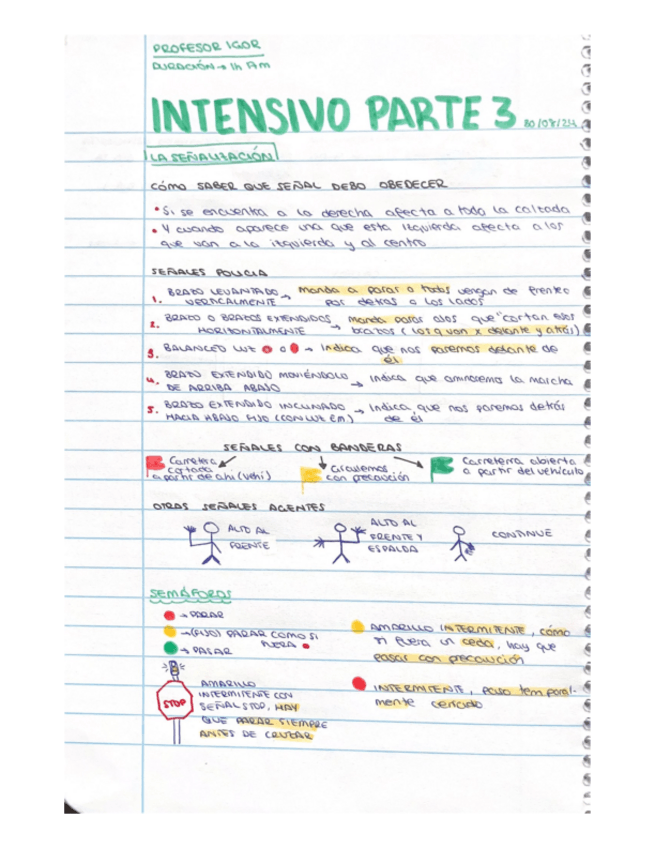 PROFESOR IGOR
DURACIÓN → 1h 17m
INTENSIVO PARTE 3 30/08/24
LA SEÑALIZACIÓN
CÓMO SABER QUE SEÑAL DEBO OBEDECER
• Si se encuentra a la derecha afecta a toda la calzada
• Y cuando aparece una que esta izquierda afecta a los
que van a la izquierda y al centro
SEÑALES POLICIA
1. BRAZO LEVANTADO VERTICALMENTE → manda a parar a todos vengan de frente o
por detras o los lados
2. BRAZO O BRAZOS EXTENDIDOS HORIZONTALMENTE → manda parar a los que "cortan esos
brazos (los q van x delante y atrás)
3. BALANCEO LUZ o → Indica que nos paremos delante de
él
4. BRAZO EXTENDIDO MOVIÉNDOLO DE ARRIBA ABAJO → Indica que aminoremos la marcha
5. BRAZO EXTENDIDO INCLINADO HACIA ABAJO FIJO (CON LUZ EM) → Indica que nos paremos detrás
de él
SEÑALES CON BANDERAS
Carretera cortada a partir de ahi (vehi)
Circulemos con precaución
Carreterra abierta a partir del vehículo
OTRAS SEÑALES AGENTES
ALTO AL FRENTE
ALTO AL FRENTE Y ESPALDA
CONTINUE
SEMÁFOROS
→ PARAR
→ (FIJO) PARAR COMO SI FUERA
→ PASAR
AMARILLO INTERMITENTE, cómo
si fuera un ceda, hay que
pasar con precaución
STOP
AMARILLO
INTERMITENTE CON
SEÑAL STOP, HAY
QUE PARAR SIEMPRE
ANTES DE CRUZAR
INTERMITENTE, paso temporal-
mente cerrado